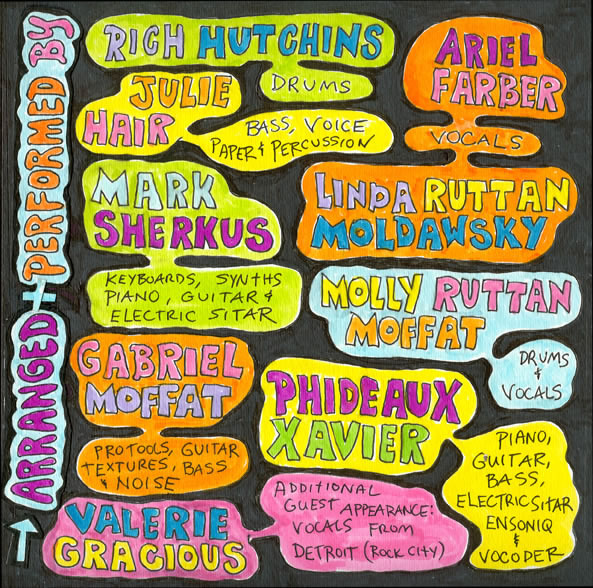 ARRANGED + PERFORMED BY
RICH HUTCHINS
DRUMS
ARIEL
FARBER
VOCALS
JULIE
HAIR
BASS, VOICE
PAPER & PERCUSSION
MARK
SHERKUS
KEYBOARDS, SYNTHS
PIANO, GUITAR &
ELECTRIC SITAR
LINDA RUTTAN
MOLDAWSKY
MOLLY RUTTAN
MOFFAT
DRUMS
&
VOCALS
GABRIEL
MOFFAT
PROTOOLS, GUITAR
TEXTURES, BASS
& NOISE
PHIDEAUX
XAVIER
PIANO,
GUITAR,
BASS,
ELECTRIC SITAR
ENSONIQ
&
VOCODER
VALERIE
GRACIOUS
ADDITIONAL
GUEST APPEARANCE:
VOCALS FROM
DETROIT (ROCK CITY)